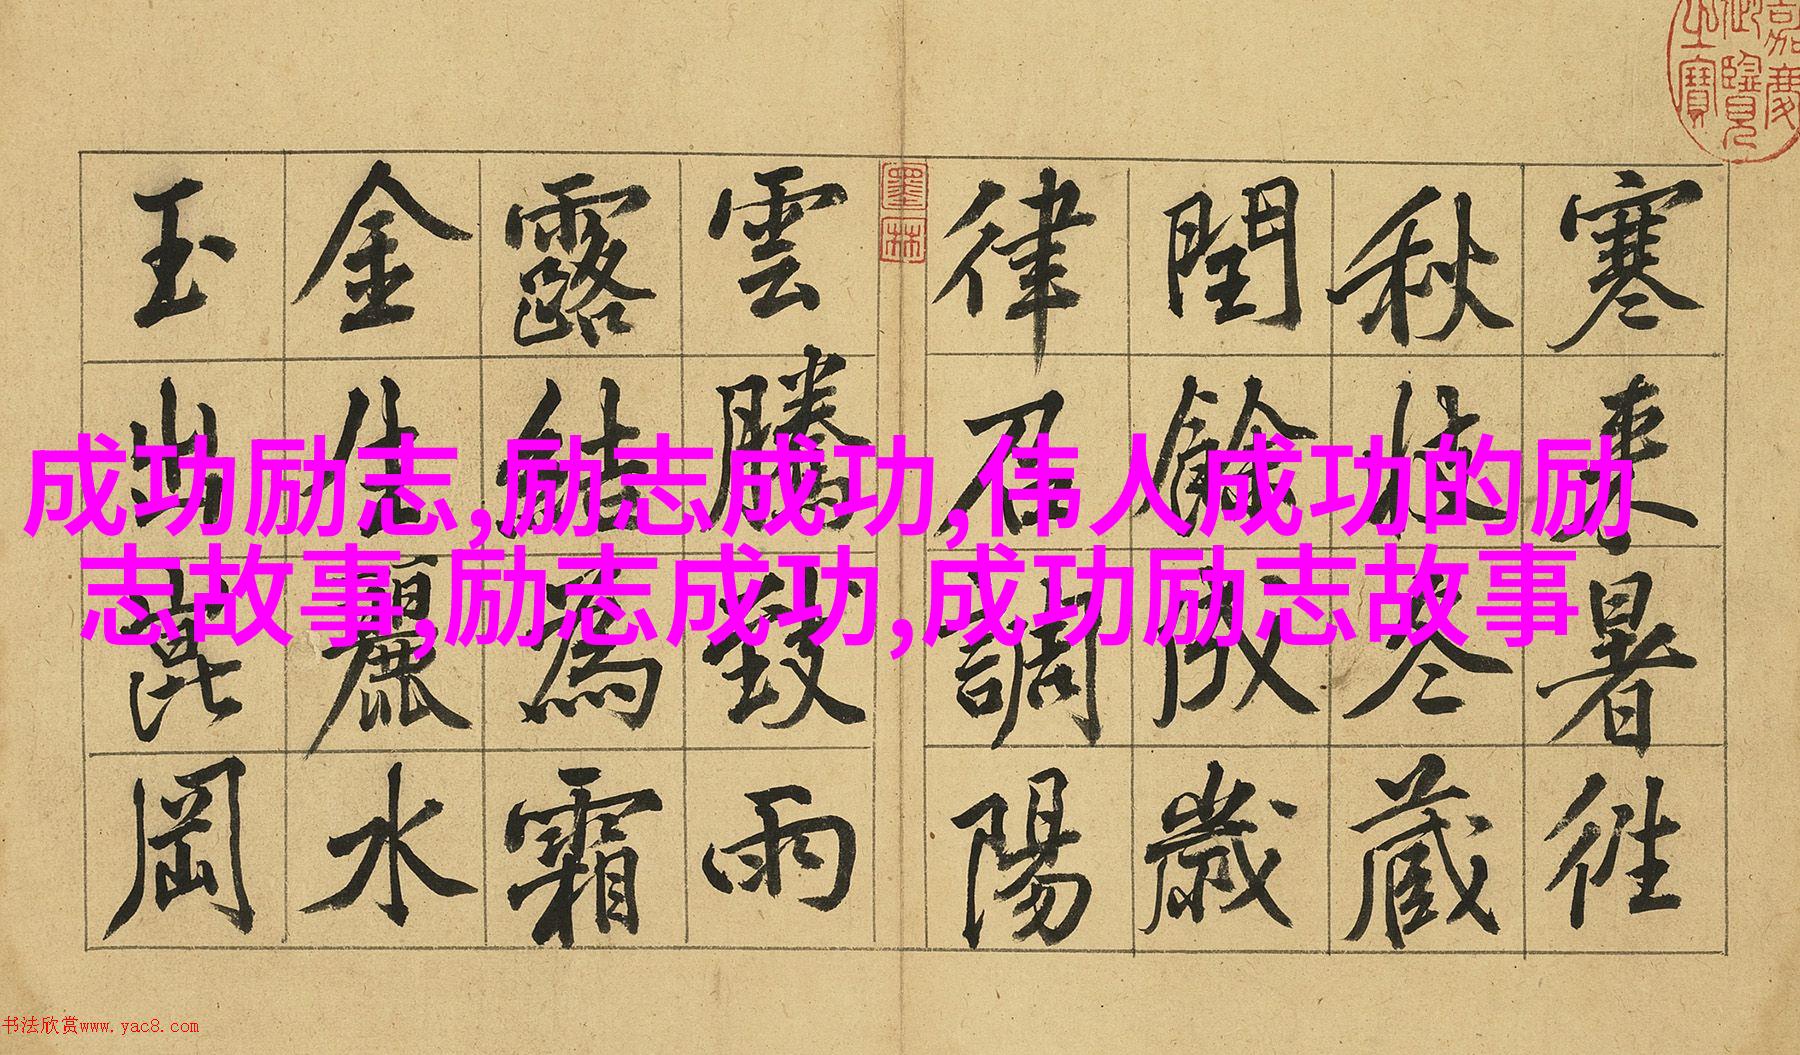 嘉慶
御覽
之寶
寒來暑徃
秋收冬藏
閏餘成歲
律召調陽
墨林
雲騰致雨
露結為霜
金生麗水
玉出崑岡
成功励志,励志成功,伟人成功的励
志故事,励志成功,成功励志故事
书法欣赏www.yac8.com